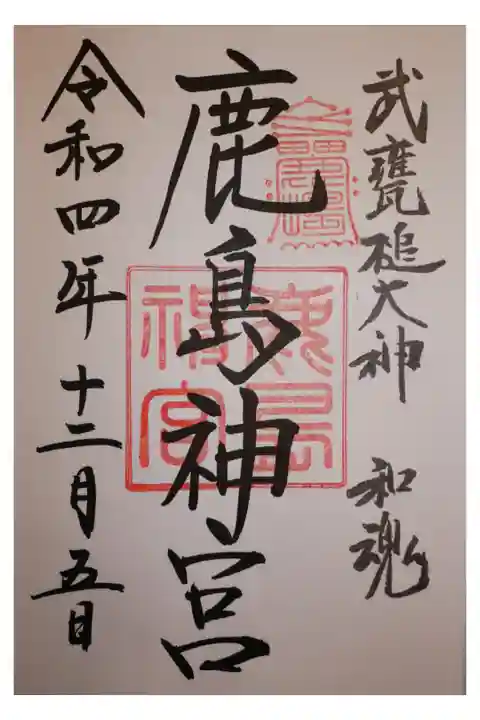 武甕槌大神 和魂
鹿島神宮
鹿島神宮
令和四年十二月五日